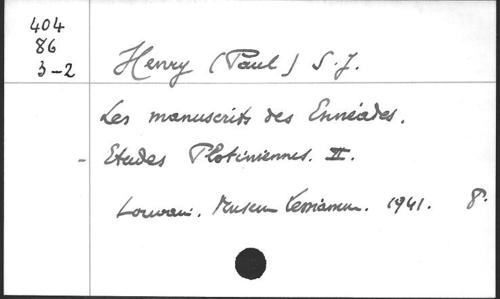 404
86
3-2
Henry (Paul) S.J.
Les manuscrits des Ennéades.
- Etudes Plotiniennes. II.
Louvain. Museum Lessianum. 1941. 8°.